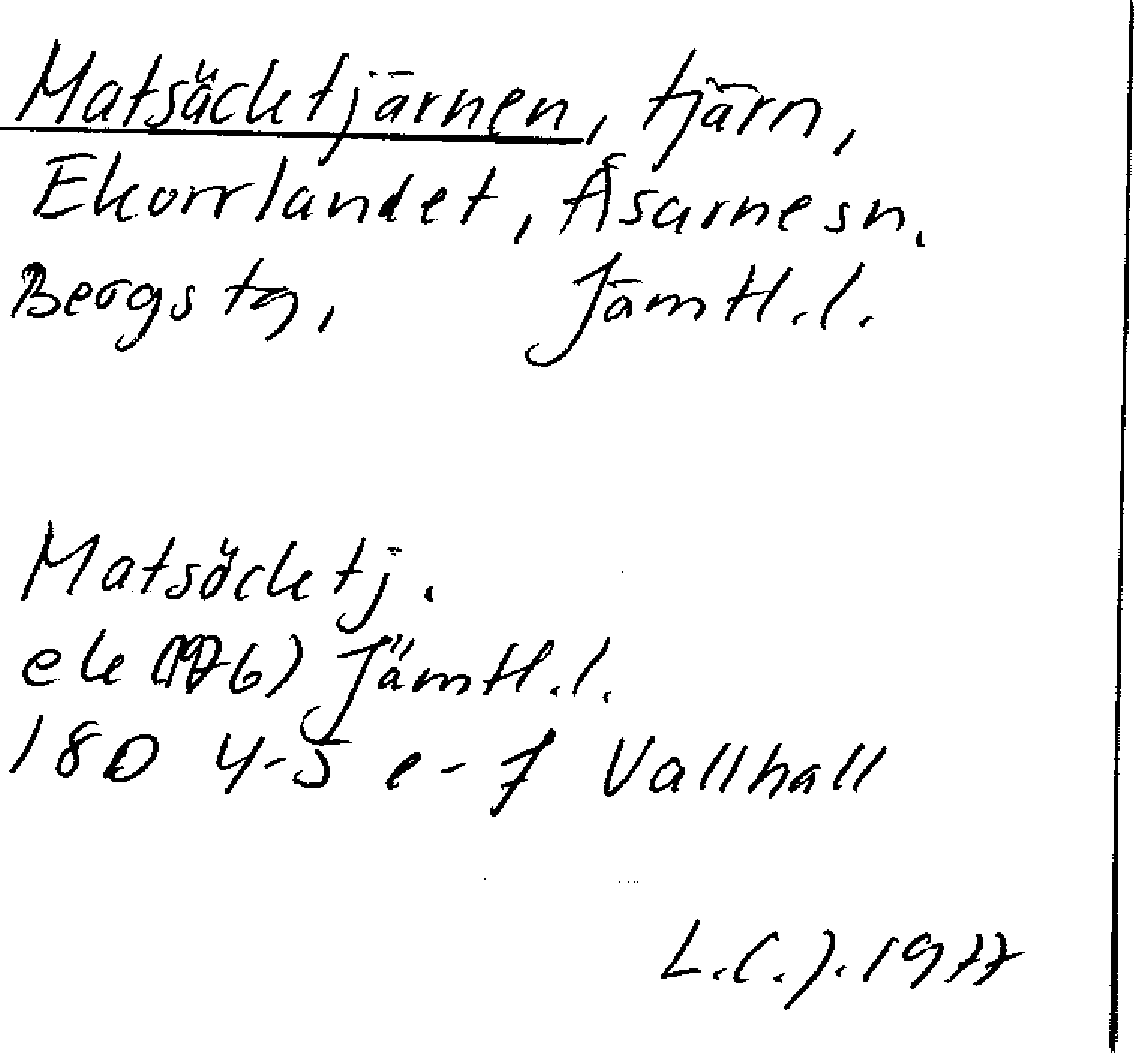 Matsäcktjärnen, tjärn,
Ekorrlandet, Åsarne sn.
Bergs tg, Jämtl.l.
Matsäcktj.
ek (1976) Jämtl.l.
18D 4-5 e-f Vallhall
L.C.J. 1977